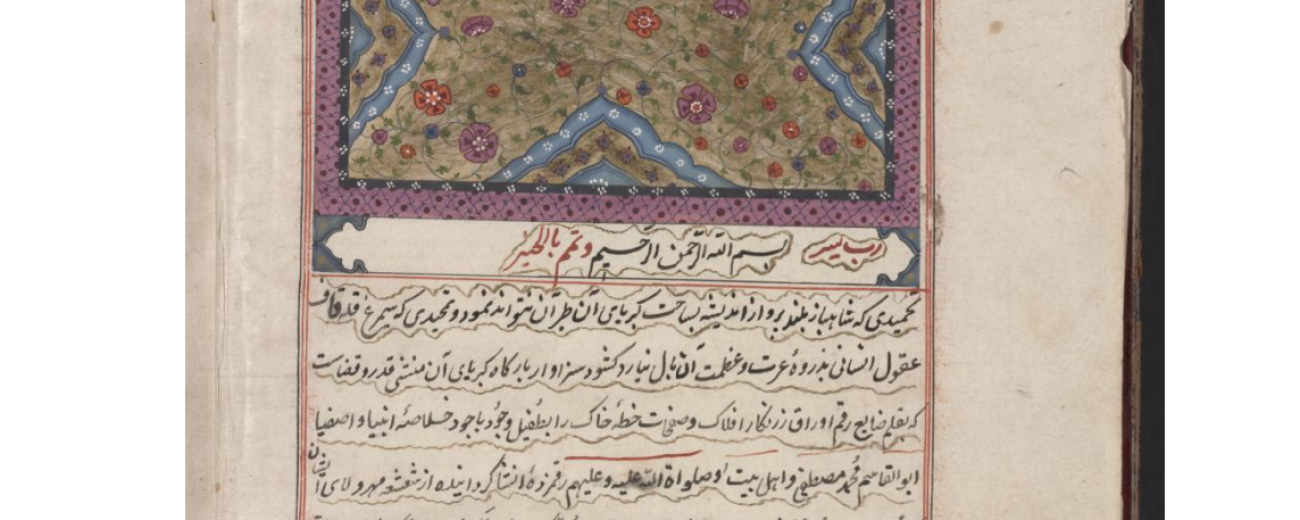 رب یسر بسم الله الرحمن الرحیم وتمم بالخیر
تحمیدی که شاهباز بلند پرواز اندیشه بساحت کبریای آن طیران نتواند نمود و تمجیدی که سیمرغ قله قاف
عقول انسانی بذروهٔ عزت و عظمت آن بال نیارد کشود سزاوار بارکاه کبریای آن منشئ قدر و قضاست
که بقلم ضایع رقم اوراق زرنکار افلاک و صفحات خطهٔ خاک را بطفیل وجود باجود خلاصهٔ انبیا و اصفیا
ابوالقاسم محمد مصطفی و اهل بیت او صلواة الله علیه و علیهم رقمزدهٔ انشا کردانیده از شعشعه مهر و لای ایشان